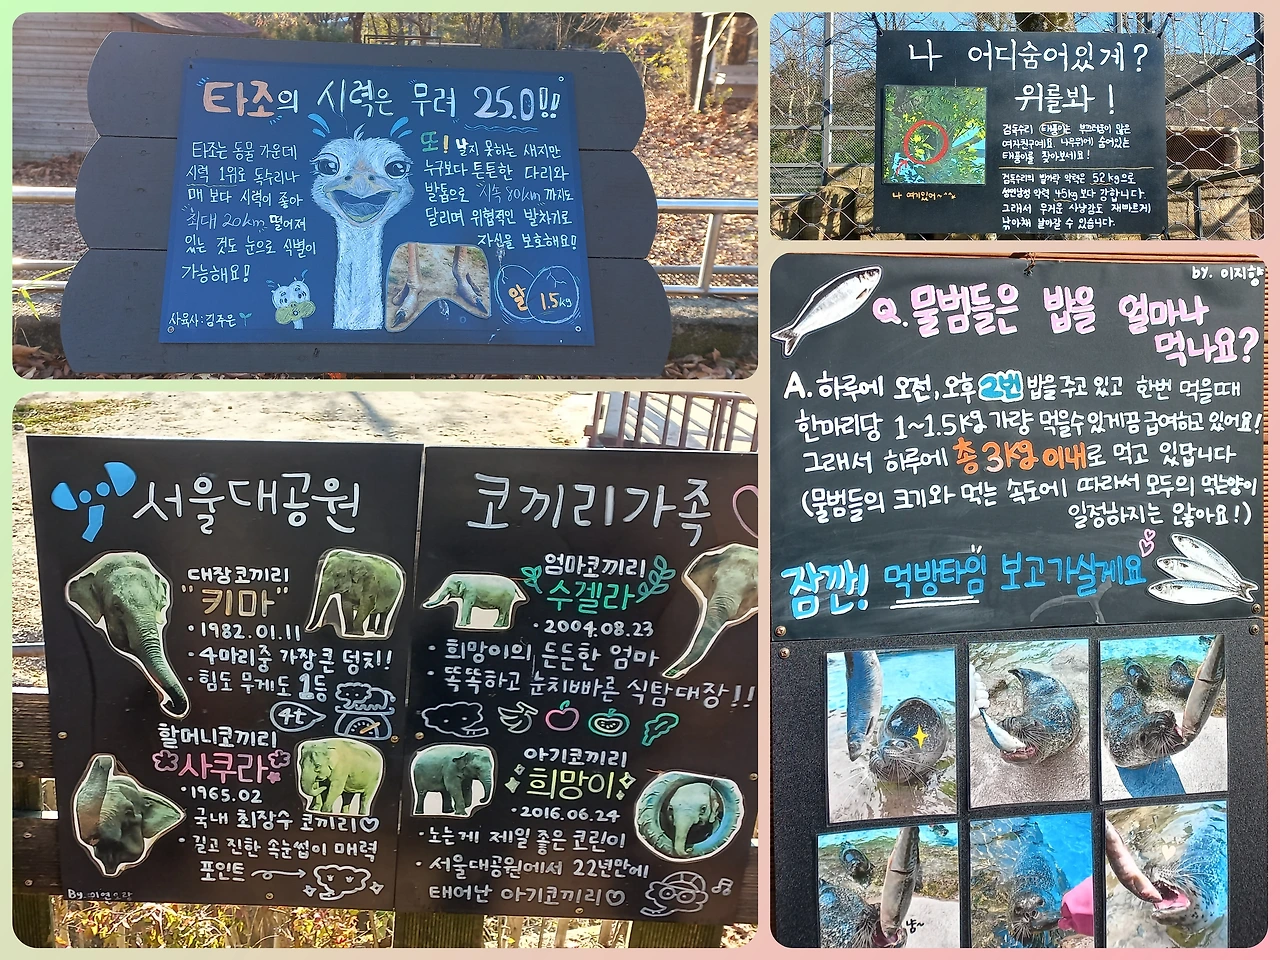 타조의 시력은 무려 25.0!!
타조는 동물 가운데
시력 1위로 독수리나
매 보다 시력이 좋아
최대 20km 떨어져
있는 것도 눈으로 식별이
가능해요!
또! 날지 못하는 새지만
누구보다 튼튼한 다리와
발톱으로 시속 80km 까지도
달리며 위협적인 발차기로
자신을 보호해요!!
알 1.5kg
사육사:김주은
나 어디숨어있게?
위를봐!
검독수리 태풍이는 부끄러움이 많은
여자친구에요 나무뒤에 숨어있는
태풍이를 찾아보세요!
검독수리의 발가락 악력은 52kg으로
성인남성 악력 45kg 보다 강합니다.
그래서 무거운 사냥감도 재빠르게
낚아채 날아갈 수 있습니다.
나 여기있어~^^
by. 이지향
Q. 물범들은 밥을 얼마나
먹나요?
A. 하루에 오전, 오후 2번 밥을 주고 있고 한번 먹을때
한마리당 1~1.5kg 가량 먹을수 있게끔 급여하고 있어요!
그래서 하루에 총 3kg 이내로 먹고 있답니다
(물범들의 크기와 먹는 속도에 따라서 모두의 먹는양이
일정하지는 않아요!)
잠깐! 먹방타임 보고가실게요
냥~
서울대공원
대장코끼리
"키마"
·1982.01.11
·4마리중 가장큰 덩치!
·힘도 무게도 1등
4t
할머니코끼리
사쿠라
·1965.02
·국내 최장수 코끼리♡
·길고 진한 속눈썹이 매력
포인트
코끼리가족
엄마코끼리
수겔라
·2004.08.23
·희망이의 든든한 엄마
·똑똑하고 눈치빠른 식탐대장!!
아기코끼리
희망이
·2016.06.24
·노는게 제일 좋은 코린이
·서울대공원에서 22년만에
태어난 아기코끼리♡